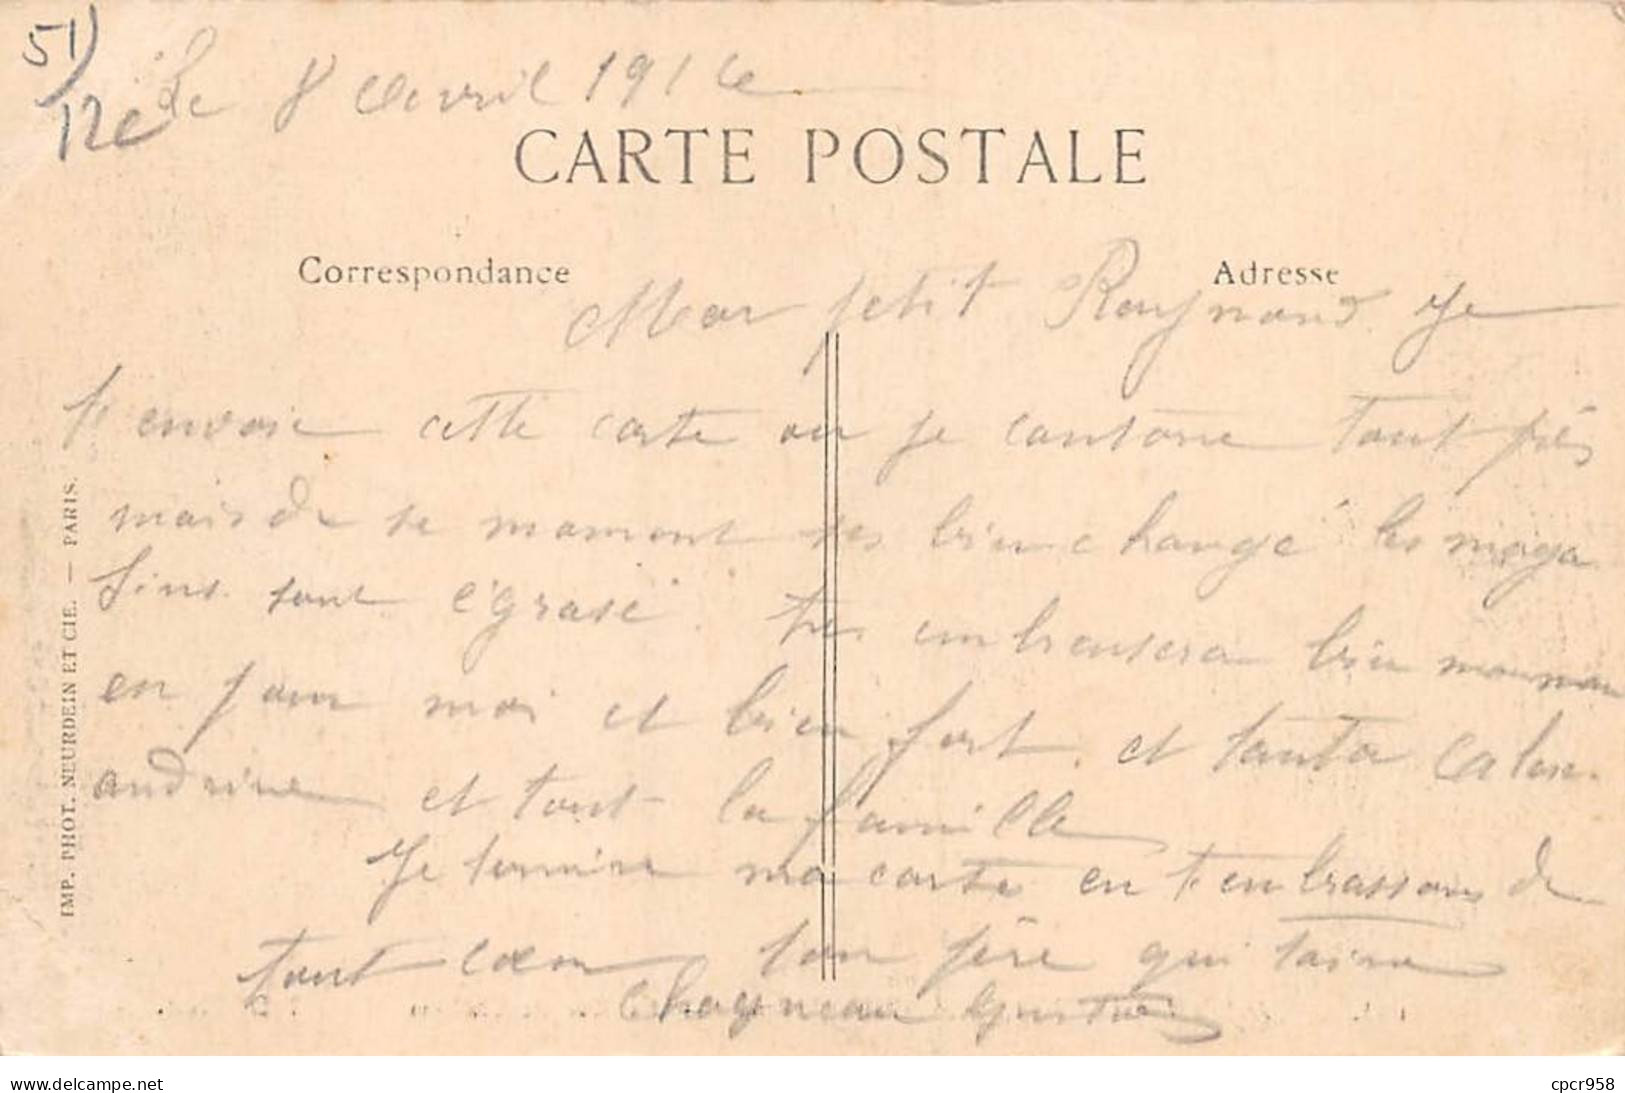 51)
12e
Le 8 Avril 1916
CARTE POSTALE
Correspondance
Adresse
Mon petit Raymond Je
t'envoie cette carte ou je cantone tout près
mais de se moment ses bien changé les maga
sins sont égrasé. tu embrassera bien maman
en pour moi et bien fort. et tanta
andrine et tout la famille
Je termine ma carte en t'enbrassons de
tout cœur ton père qui t'aime
Chagneau Gustave
IMP. PHOT. NEURDEIN ET CIE. — PARIS.
www.delcampe.net
cpcr958